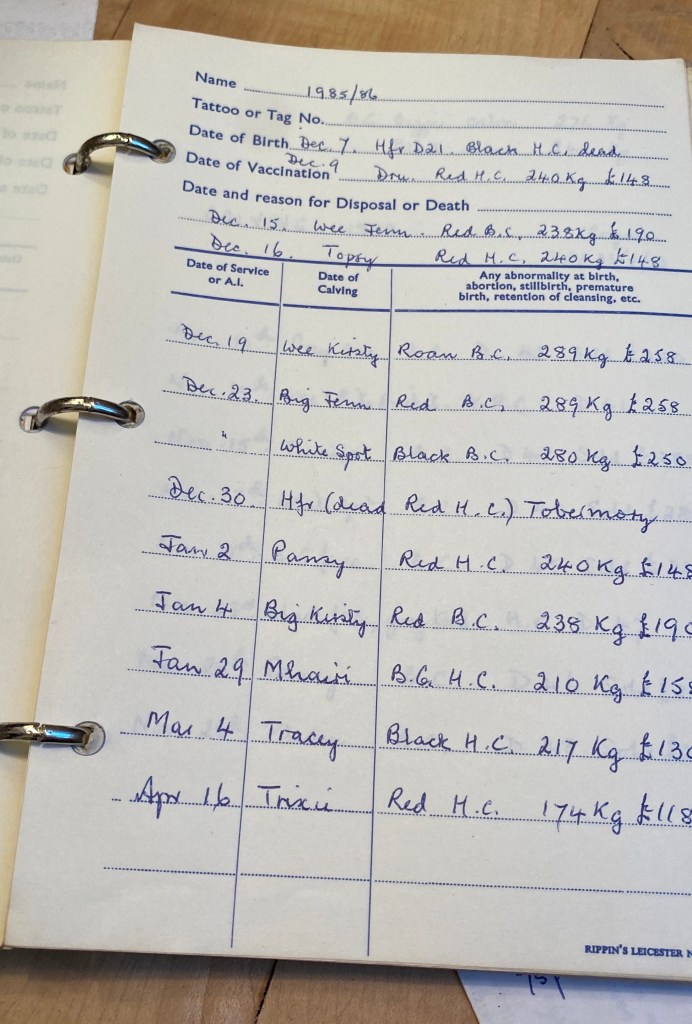 Name 1985/86
Tattoo or Tag No.
Date of Birth Dec. 7. Hfr D21. Black H.C. dead
Date of Vaccination Dec. 9 Dru. Red H.C. 240 Kg £148
Date and reason for Disposal or Death
Dec. 15. Wee Fenn. Red B.C. 238 Kg £190
Dec. 16. Topsy Red H.C. 240 Kg £148
Date of Service or A.I. Date of Calving Any abnormality at birth, abortion, stillbirth, premature birth, retention of cleansing, etc.
Dec. 19 Wee Kirsty Roan B.C. 289 Kg £258
Dec. 23. Big Fenn Red B.C. 289 Kg £258
" White Spot Black B.C. 280 Kg £250
Dec. 30. Hfr (dead Red H.C.) Tobermory
Jan 2 Pansy Red H.C. 240 Kg £148
Jan 4 Big Kirsty Red B.C. 238 Kg £190
Jan 29 Mhairi B.G. H.C. 210 Kg £15
Mar 4 Tracey Black H.C. 217 Kg £130
Apr 16 Trixie Red H.C. 174 Kg £118
RIPPIN'S LEICESTER